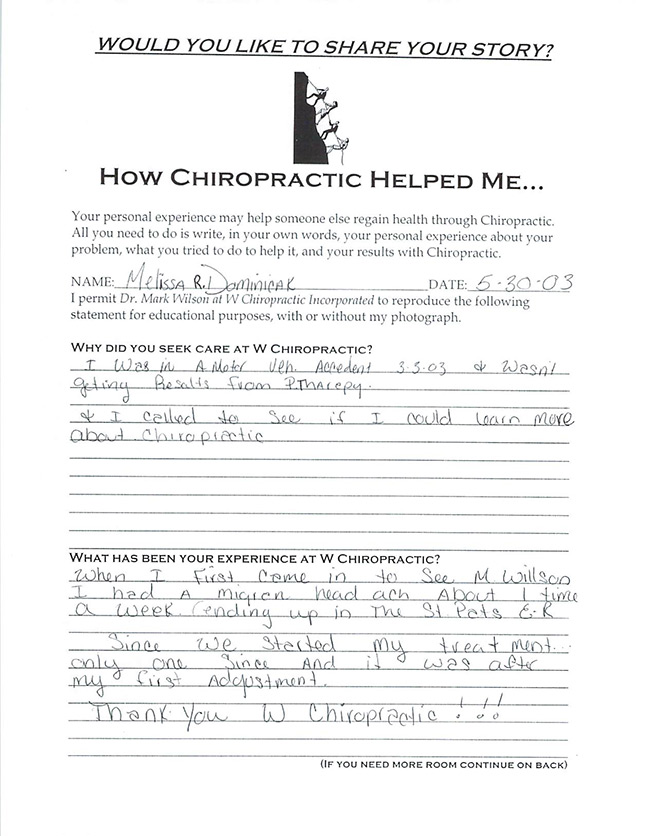 WOULD YOU LIKE TO SHARE YOUR STORY?
HOW CHIROPRACTIC HELPED ME...
Your personal experience may help someone else regain health through Chiropractic.
All you need to do is write, in your own words, your personal experience about your
problem, what you tried to do to help it, and your results with Chiropractic.
NAME: Melissa R. Dominiak DATE: 5-30-03
I permit Dr. Mark Wilson at W Chiropractic Incorporated to reproduce the following
statement for educational purposes, with or without my photograph.
WHY DID YOU SEEK CARE AT W CHIROPRACTIC?
I Was in A Moter Veh. Accedent 3-3-03 & Wasn't
geting Results from P.Tharepy.
& I called to See if I could learn more
about Chiropractic
WHAT HAS BEEN YOUR EXPERIENCE AT W CHIROPRACTIC?
When I First Came in to See M Willson
I had A migren head ach About 1 time
a week (ending up in The St Pats E-R
Since We Started my treatment...
only one Since And it was after
my first Addjustment.
Thank You W Chiropractic !!!
(IF YOU NEED MORE ROOM CONTINUE ON BACK)